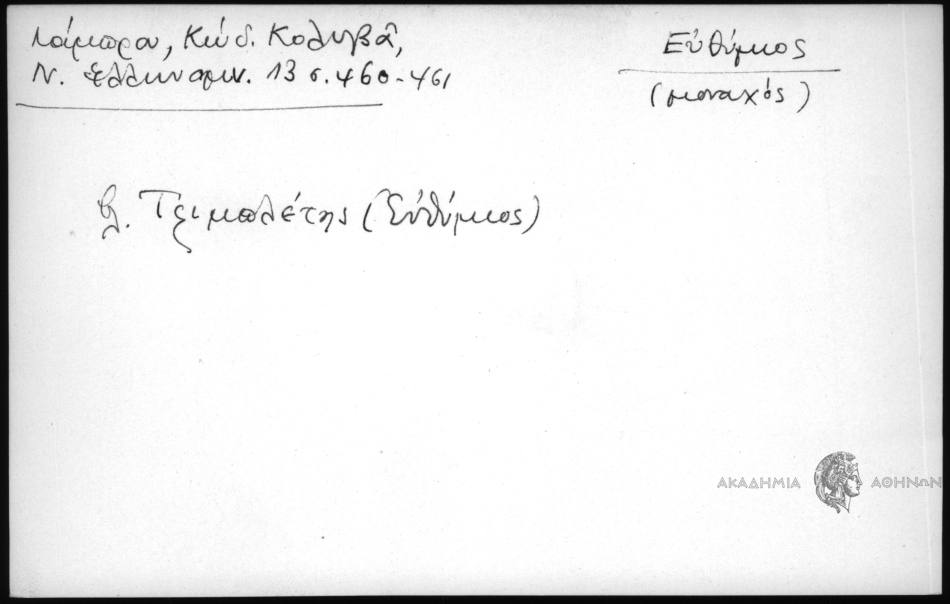 Λάμπρου, Κώδ. Κολυβᾶ,
Ν. Ἑλληνομν. 13 σ. 460-461
Εὐθύμιος
(μοναχός)
βλ. Τριμπολέτης (Εὐθύμιος)
ΑΚΑΔΗΜΙΑ ΑΘΗΝΩΝ